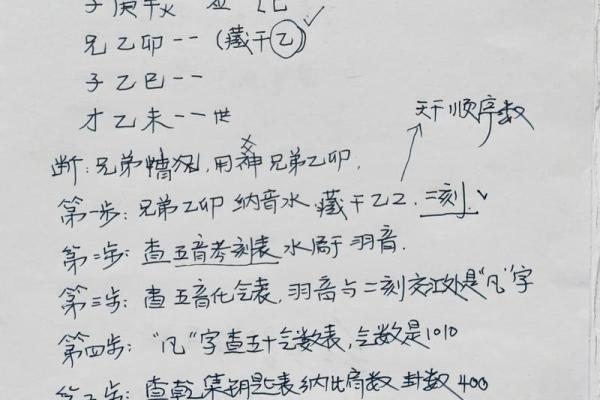 兄乙卯--(藏干乙)✓
子乙巳--
才乙未--世
天干顺序数
断:兄弟情况,用神兄弟乙卯.
第一步:兄弟乙卯 纳音水 藏干乙2.二刻.✓
第二步:查五音考刻表 水属于羽音.
第三步:查五音化气表,羽音与二刻交汇处是“凡”字
第四步:“凡”字查五十气数表,气数是1010
第五步:查乾集钥匙表纳比肩数 卦数400